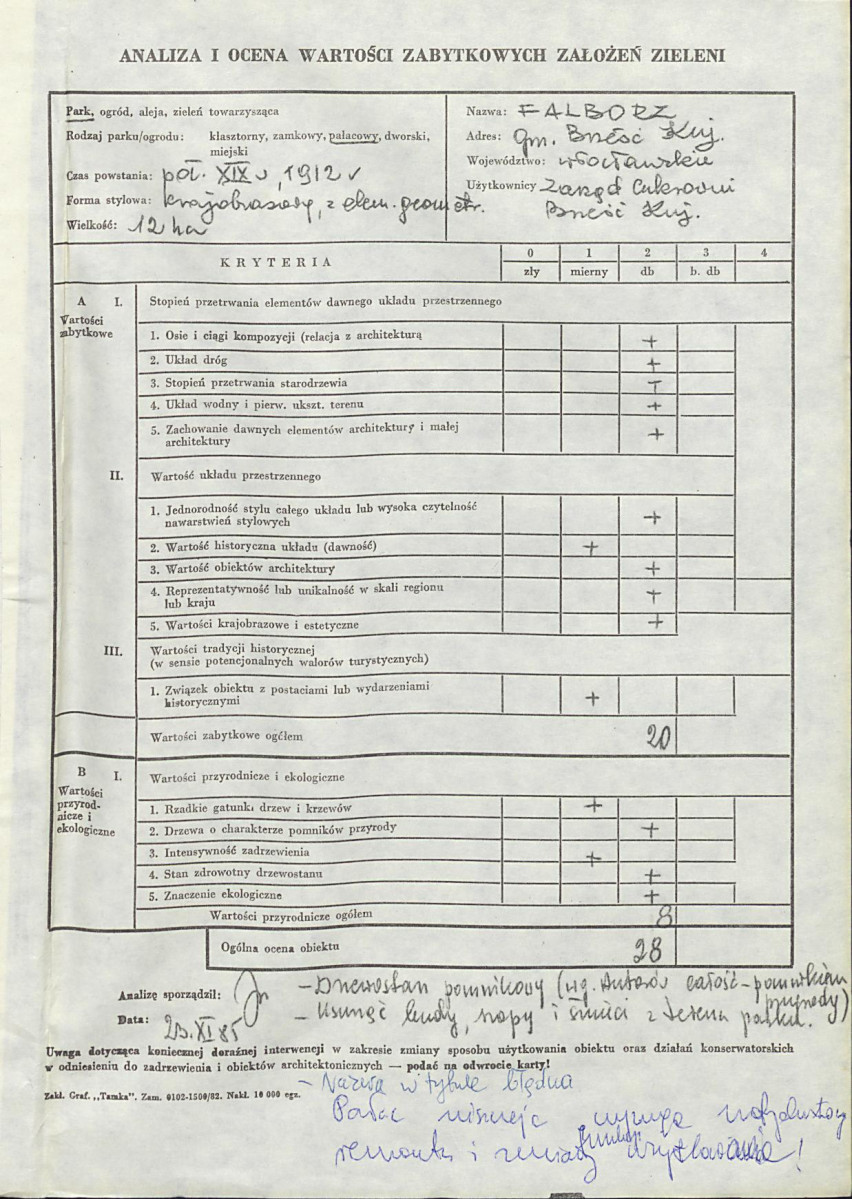 ANALIZA I OCENA WARTOŚCI ZABYTKOWYCH ZAŁOŻEŃ ZIELENI
Park, ogród, aleja, zieleń towarzysząca
Rodzaj parku/ogrodu: klasztorny, zamkowy, pałacowy, dworski,
miejski
Czas powstania: poł. XIX w, 1912 r
Forma stylowa: krajobrazowy, z elem. geometr.
Wielkość: 12 ha
Nazwa: FALBORZ
Adres: Gm. Brześć Kuj.
Województwo: włocławskie
Użytkownicy Zarząd Cukrowni
Brześć Kuj.
KRYTERIA 0 1 2 3 4
zły mierny db b. db
A I. Stopień przetrwania elementów dawnego układu przestrzennego
Wartości
zabytkowe
1. Osie i ciągi kompozycji (relacja z architekturą +
2. Układ dróg +
3. Stopień przetrwania starodrzewia +
4. Układ wodny i pierw. ukszt. terenu +
5. Zachowanie dawnych elementów architektury i małej
architektury +
II. Wartość układu przestrzennego
1. Jednorodność stylu całego układu lub wysoka czytelność
nawarstwień stylowych +
2. Wartość historyczna układu (dawność) +
3. Wartość obiektów architektury +
4. Reprezentatywność lub unikalność w skali regionu
lub kraju +
5. Wartości krajobrazowe i estetyczne +
III. Wartości tradycji historycznej
(w sensie potencjonalnych walorów turystycznych)
1. Związek obiektu z postaciami lub wydarzeniami
historycznymi +
Wartości zabytkowe ogółem 20
B I. Wartości przyrodnicze i ekologiczne
Wartości
przyrod-
nicze i
ekologiczne
1. Rzadkie gatunki drzew i krzewów +
2. Drzewa o charakterze pomników przyrody +
3. Intensywność zadrzewienia +
4. Stan zdrowotny drzewostanu +
5. Znaczenie ekologiczne +
Wartości przyrodnicze ogółem 8
Ogólna ocena obiektu 28
Analizę sporządził:
– Drzewostan pomnikowy (wg. Autorów całość – pomnikiem
przyrody)
Data: XI 85
– Usunąć budy, szopy i śmieci z terenu parku.
Uwaga dotycząca koniecznej doraźnej interwencji w zakresie zmiany sposobu użytkowania obiektu oraz działań konserwatorskich
w odniesieniu do zadrzewienia i obiektów architektonicznych — podać na odwrocie karty!
Zakł. Graf. „Tamka". Zam. 0102-1500/82. Nakł. 10 000 egz.
– Nazwa w tytule błędna
Pałac niszczeje wymaga natychmiastowego
remontu i zmiany funkcji użytkowania!